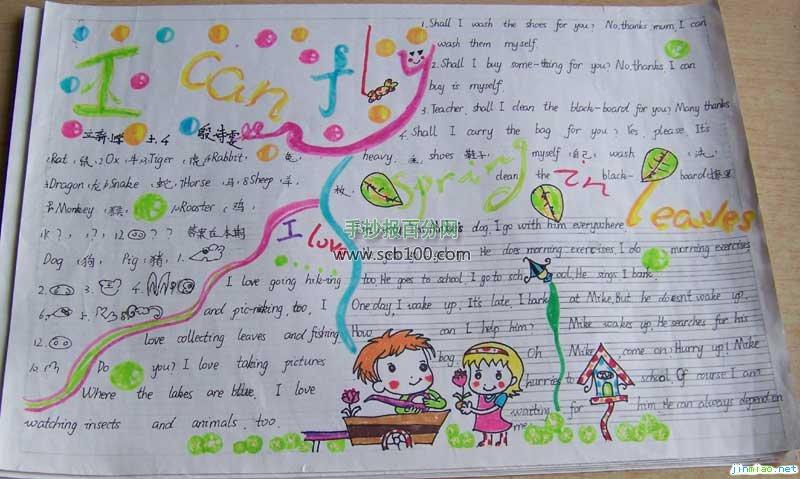 I can f
1. Shall I wash the shoes for you? No, thanks mum, I can
wash them myself.
2. Shall I buy some-thing for you? No, thanks I can
buy is myself.
3. Teacher, shall I clean the black-board for you? Many thanks
4. Shall I carry the bag for you? Yes, please. It's
heavy. shoes 鞋子 myself 自己 wash 洗
clean the black-board
Rat, 鼠, 2 Ox, 牛 Tiger, 虎 Rabbit, 兔,
Dragon, 龙 Snake, 蛇, 7 Horse, 马, 8 Sheep, 羊,
Monkey, 猴, Rooster, 鸡,
Dog, 狗, Pig, 猪, 1.
2. 3. 4.
12.
Sprang in leaves
手抄报百分网
www.scb100.com
I love
I love going hik-ing
and pic-niking, too, I
love collecting leaves and fishing
Do you? I love taking pictures
Where the lakes are blue, I love
watching insects and animals, too.
dog, I go with him everywhere
He does morning exercises, I do morning exercises,
too. He goes to school, I go to school, He sings I bark.
One day, I wake up, It's late, I bark at Mike, But he doesn't wake up.
How can I help him? Mike wakes up. He searches for his
bag. Oh Mike, come on! Hurry up! Mike
hurries to school, Of course I am
waiting for him, He can always depend on
me
jinmiao.net